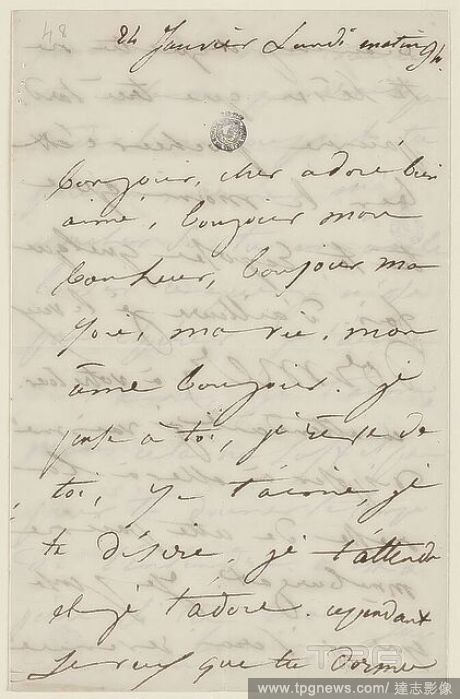 24 Janvier Lundi matin 9h.
bonjour, cher adoré bien
aimé, bonjour mon
bonheur, bonjour ma
joie, ma vie, mon
âme bonjour. je
pense à toi, je rêve de
toi, je t'aime, je
te désire, je t'attends
et je t'adore. cependant
je veux que tu dormes
www.tpgnews.com/達志影像